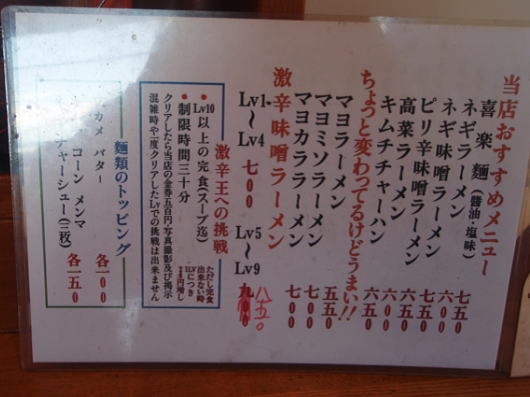 当店おすすめメニュー
喜楽麺(醤油・塩味) 七五0
ネギラーメン 六00
ネギ味噌ラーメン
ピリ辛味噌ラーメン 七五0
高菜ラーメン 六五0
キムチチャーハン 六五0
ちょっと変わってるけどうまい!!
マヨラーメン 五五0
マヨミソラーメン 七00
マヨカララーメン 七00
激辛味噌ラーメン
Lv1~Lv4 七00 Lv5~Lv9 八五0
激辛王への挑戦
●Lv10以上の完食(スープ迄)
●制限時間三十分
ただし完食
出来ない時
1Lvにつき
増し
クリアしたら当店の金券五百円・写真撮影及び掲示
混雑時や一度クリアしたLvでの挑戦は出来ません
麺類のトッピング
カメ バター 各一00
コーン メンマ
チャーシュー(三枚) 各一五0